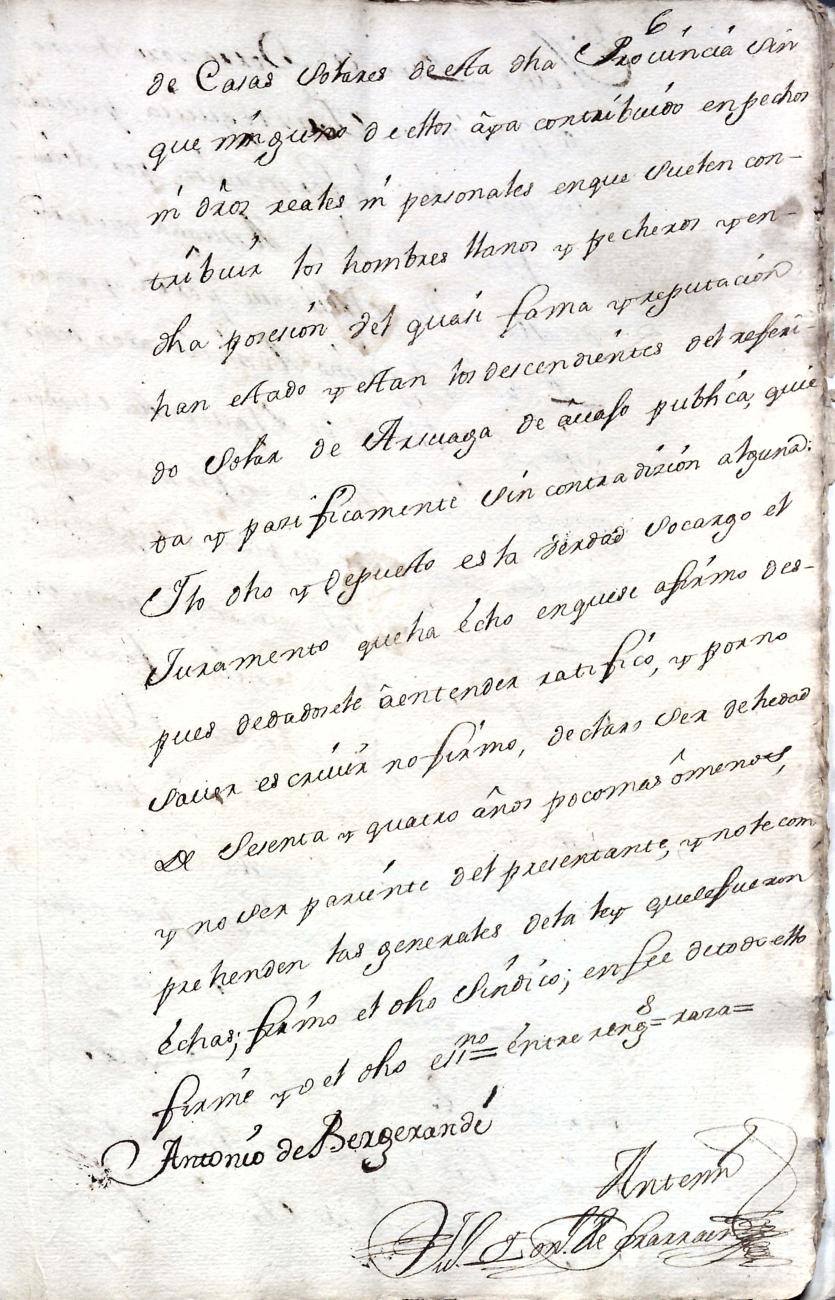 6
de Casas Solares de esta dha Provincia sin
que ninguno de ellos aya contribuido en pechos
ni dros reales ni personales en que suelen con-
tribuir los hombres llanos y pecheros y en-
dha posesión del quasi fama y reputación
han estado y estan los descendientes del referi-
do Solar de Arsuaga de publica, quie
ta y pazificamente sin contradizión alguna:
I lo dho y depuesto es la verdad so cargo el
Juramento que ha écho en que se afirmo des-
pues de dadosele a entender ratificó, y por no
saver escrivir no firmo, declaro ser de hedad
de Sesenta y quatro años poco mas ô menos,
y no ser pariente del presentante, y no le com
prehenden las generales de la ley que le fueron
échas; firmo el dho Síndico; en fee de todo ello
firmé yo el dho essno = éntre rengs = raza =
Antonio de Bergerandi
Antemi